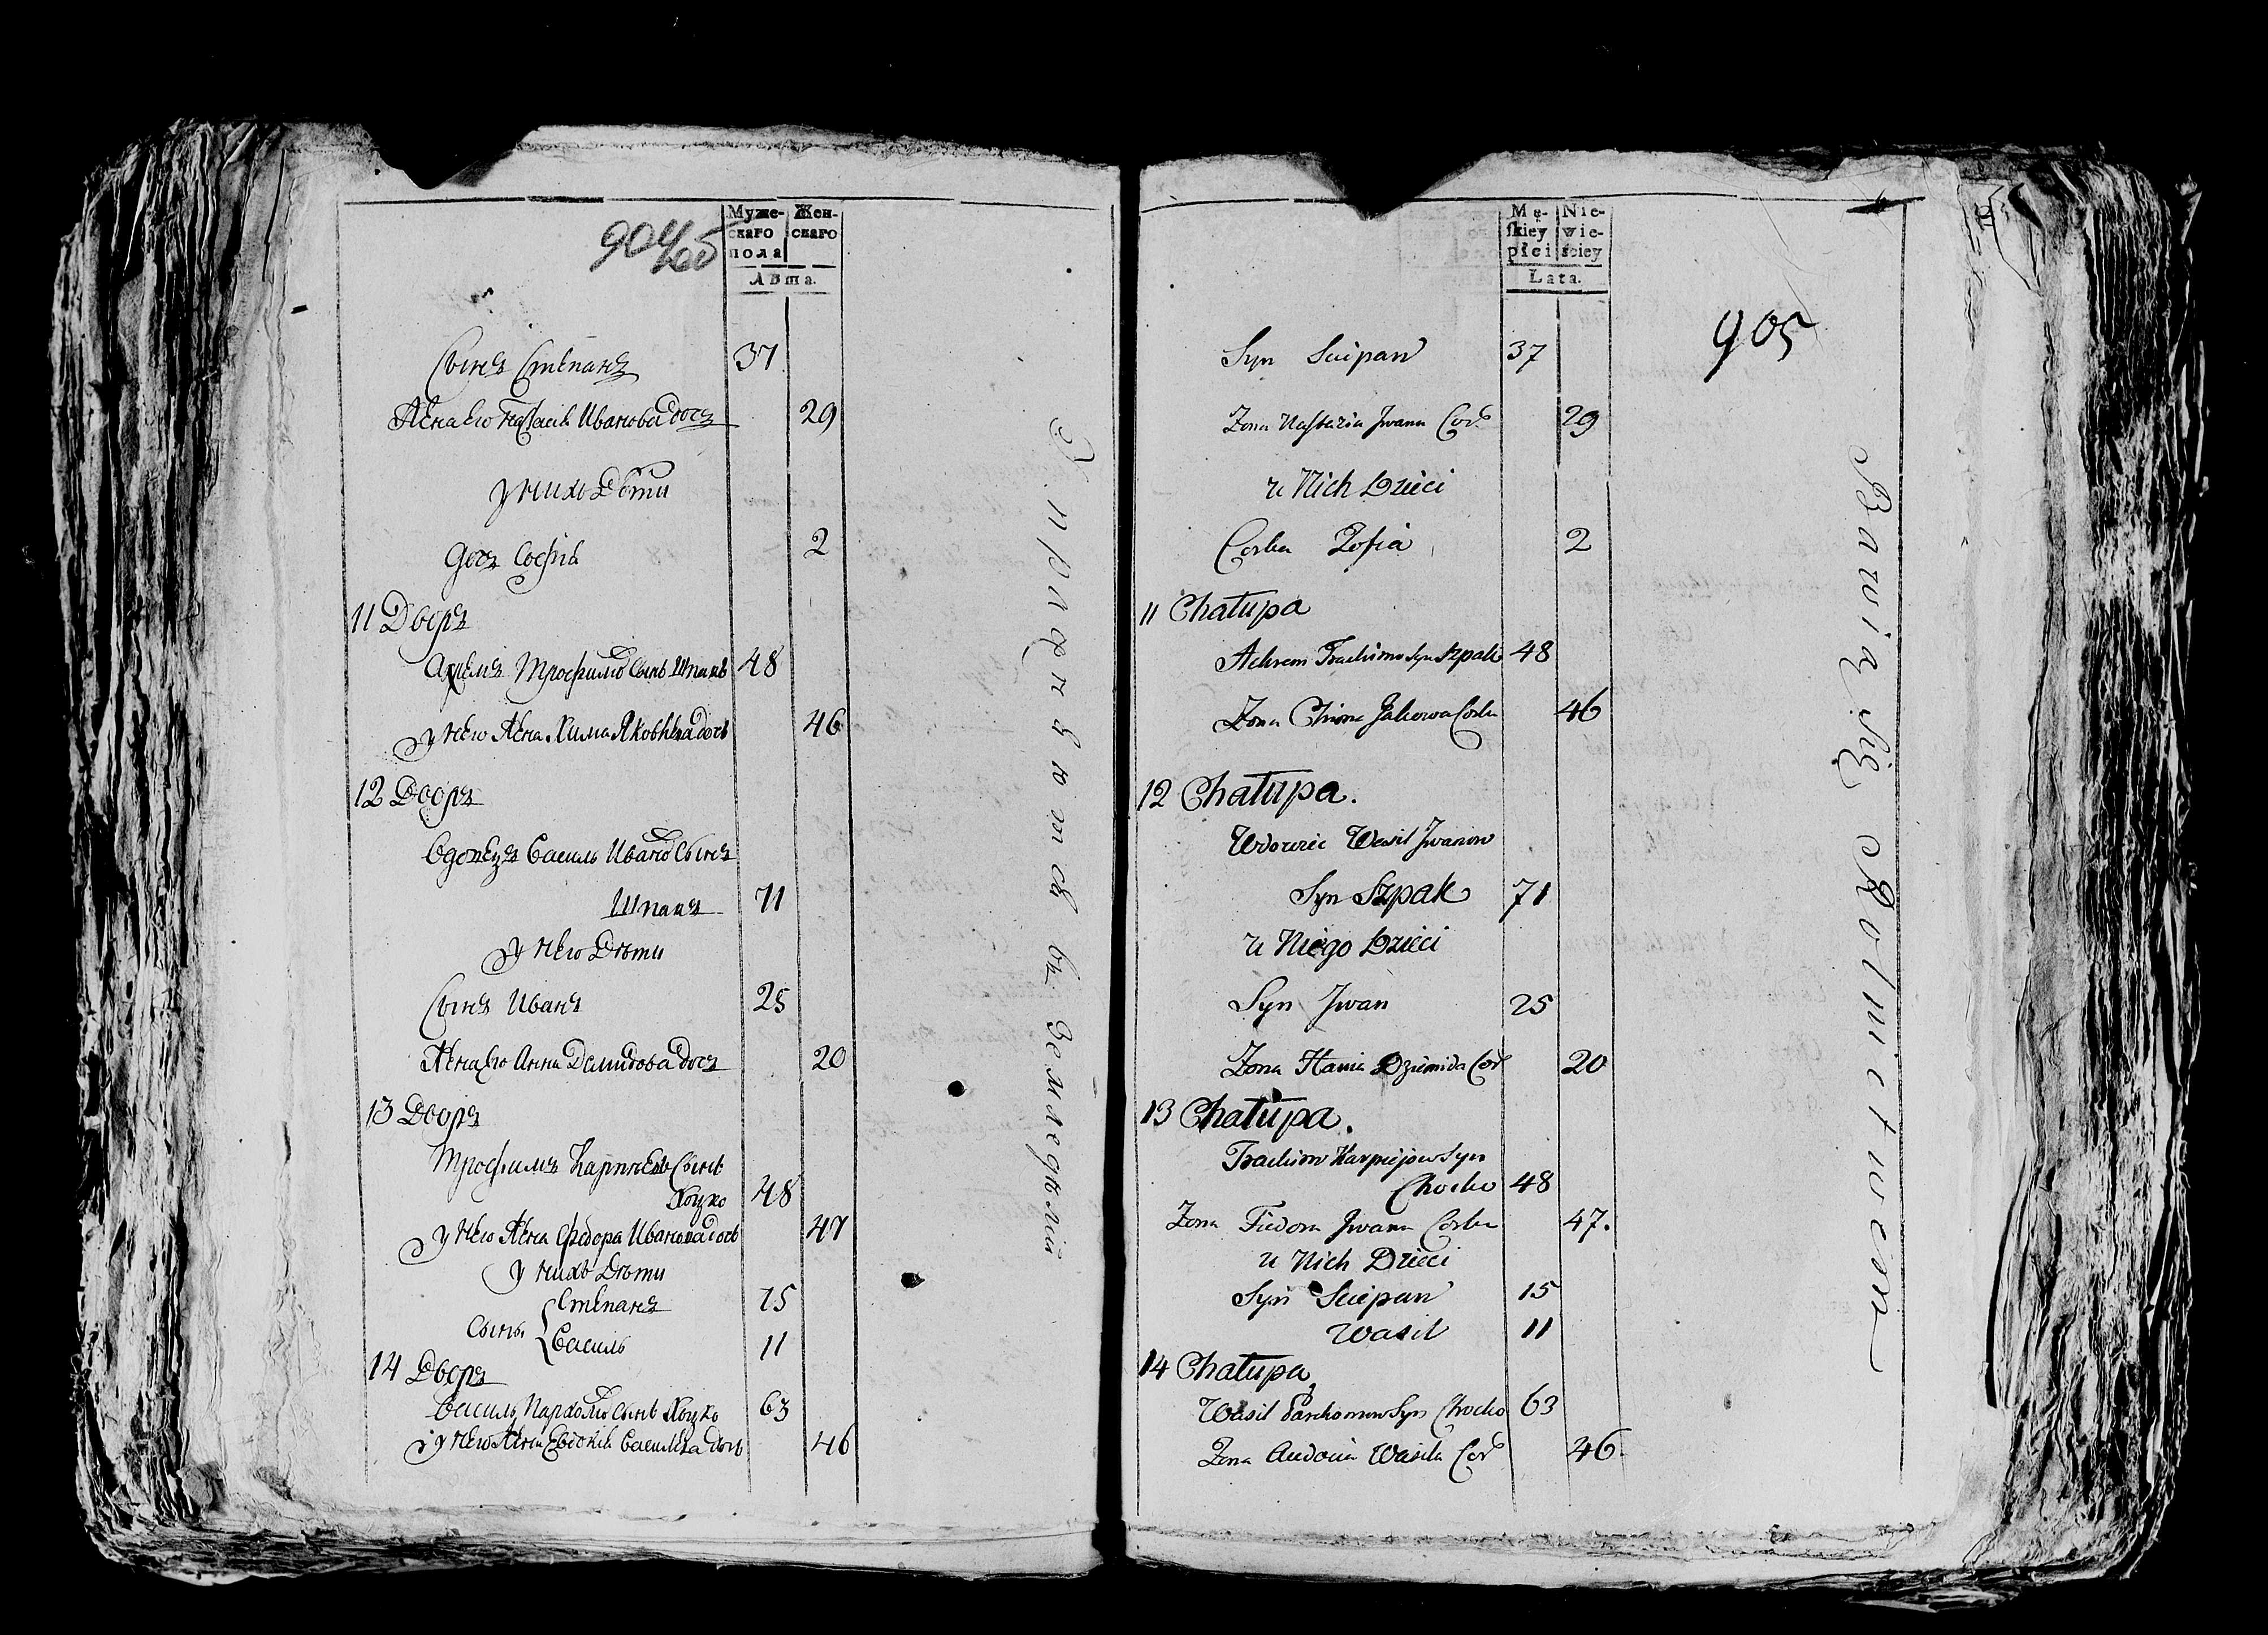 904
905
Муже-
скаго
пола
Жен-
скаго
Лѣта.
Сынъ Степанъ 37
Жена его Настасія Иванова дочь 29
у нихъ Дѣти
дочь Софія 2
11 Дворъ
Трофимовъ сынъ Шпакъ 48
у него Жена Хима Яковлева дочь 46
12 Дворъ
Вдовецъ Василь Ивановъ Сынъ
Шпакъ 71
у него Дѣти
Сынъ Иванъ 25
Жена его Анна Демидова дочь 20
13 Дворъ
Трофимъ Карпѣевъ Сынъ
Хоцко 48
у него Жена Федора Иванова дочь 47
у нихъ Дѣти
Сыны Степанъ 15
Василь 11
14 Дворъ
Василь Пархомовъ сынъ Хоцко 63
у него Жена Евдокія Васильева дочь 46
Упражняются въ Земледѣліи
Mę-
skiey
płci
Nie-
wie-
sciey
Lata.
905
Syn Sciepan 37
Zona Nastazia Jwana Cor 29
u Nich Dzieci
Corka Zofia 2
11 Chałupa
Achrem Trachimow Syn Szpak 48
Zona Chima Jakowa Corka 46
12 Chałupa.
Wdowiec Wasil Jwanow
Syn Szpak 71
u Niego Dzieci
Syn Jwan 25
Zona Hania Dziemida Cor 20
13 Chałupa.
Trachim Karpiejow Syn
Chocko 48
Zona Fiedora Jwana Corka 47.
u Nich Dzieci
Syn Sciepan 15
Wasil 11
14 Chałupa
Wasil Parchomow Syn Chocko 63
Zona Audocia Wasila Cor 46.
Bawią się Rolnictwem